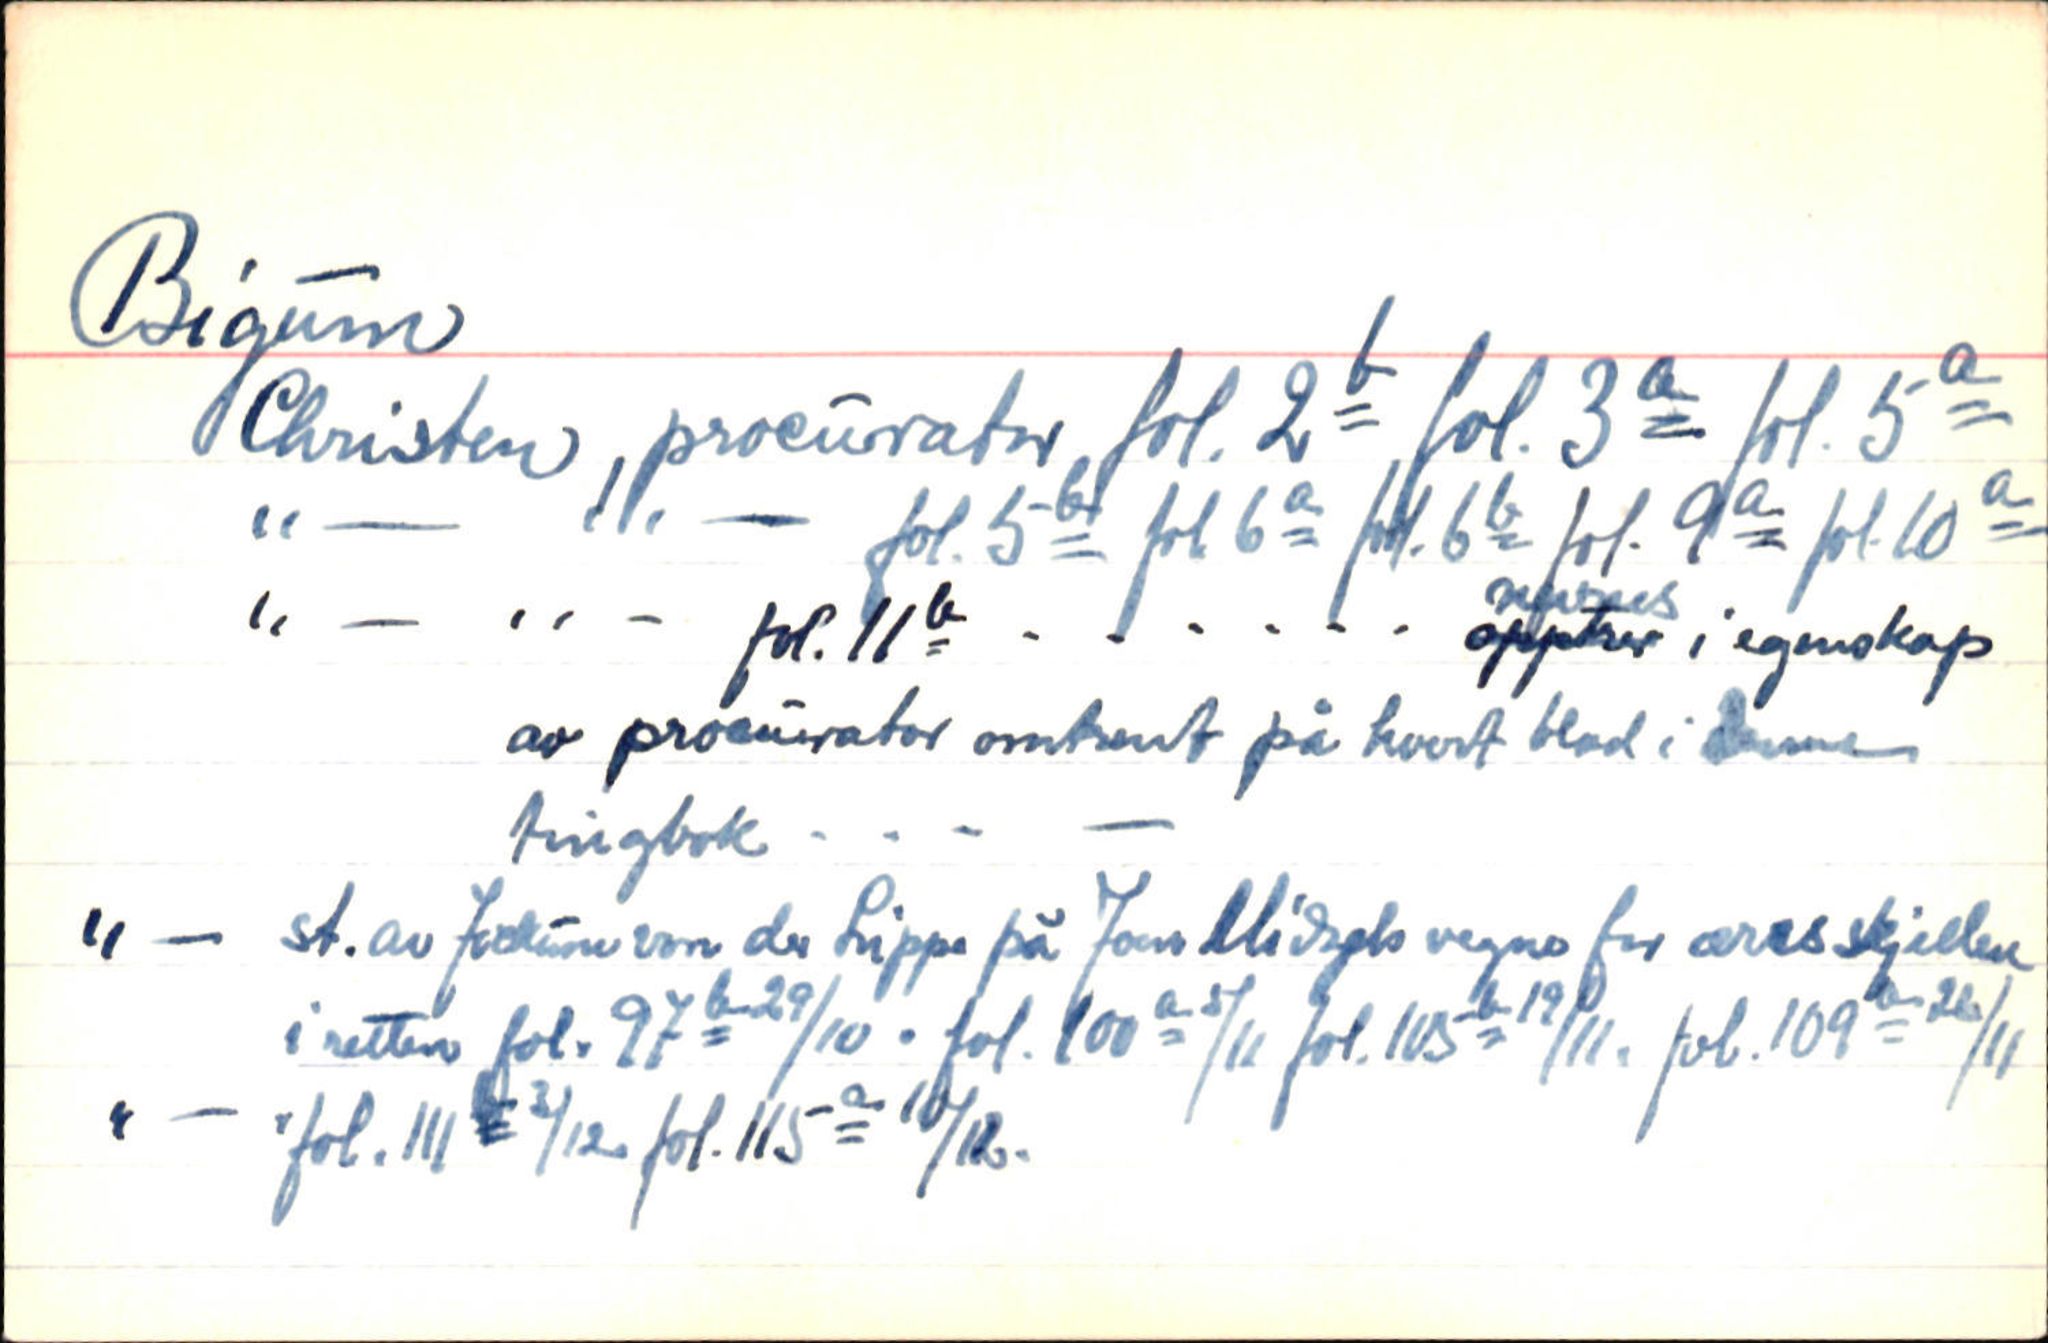 Bigum
Christen, procurator, fol. 2b fol. 3a fol. 5a
"— "— fol. 5b fol 6a fol. 6b fol. 9a fol. 10a
"— "— fol. 11b - - - - - - nevnes
opptrer i egenskap
av procurator omtrent på hvert blad i denne
tingbok - - - —
"— st. av Jockum von der Lippe på Jan vegne for æresskjellen
i retten fol. 97b 29/10 . fol. 100a 5/11 fol. 105b 19/11. fol. 109a 26/11
"— fol. 111b 3/12. fol. 115a 10/12.